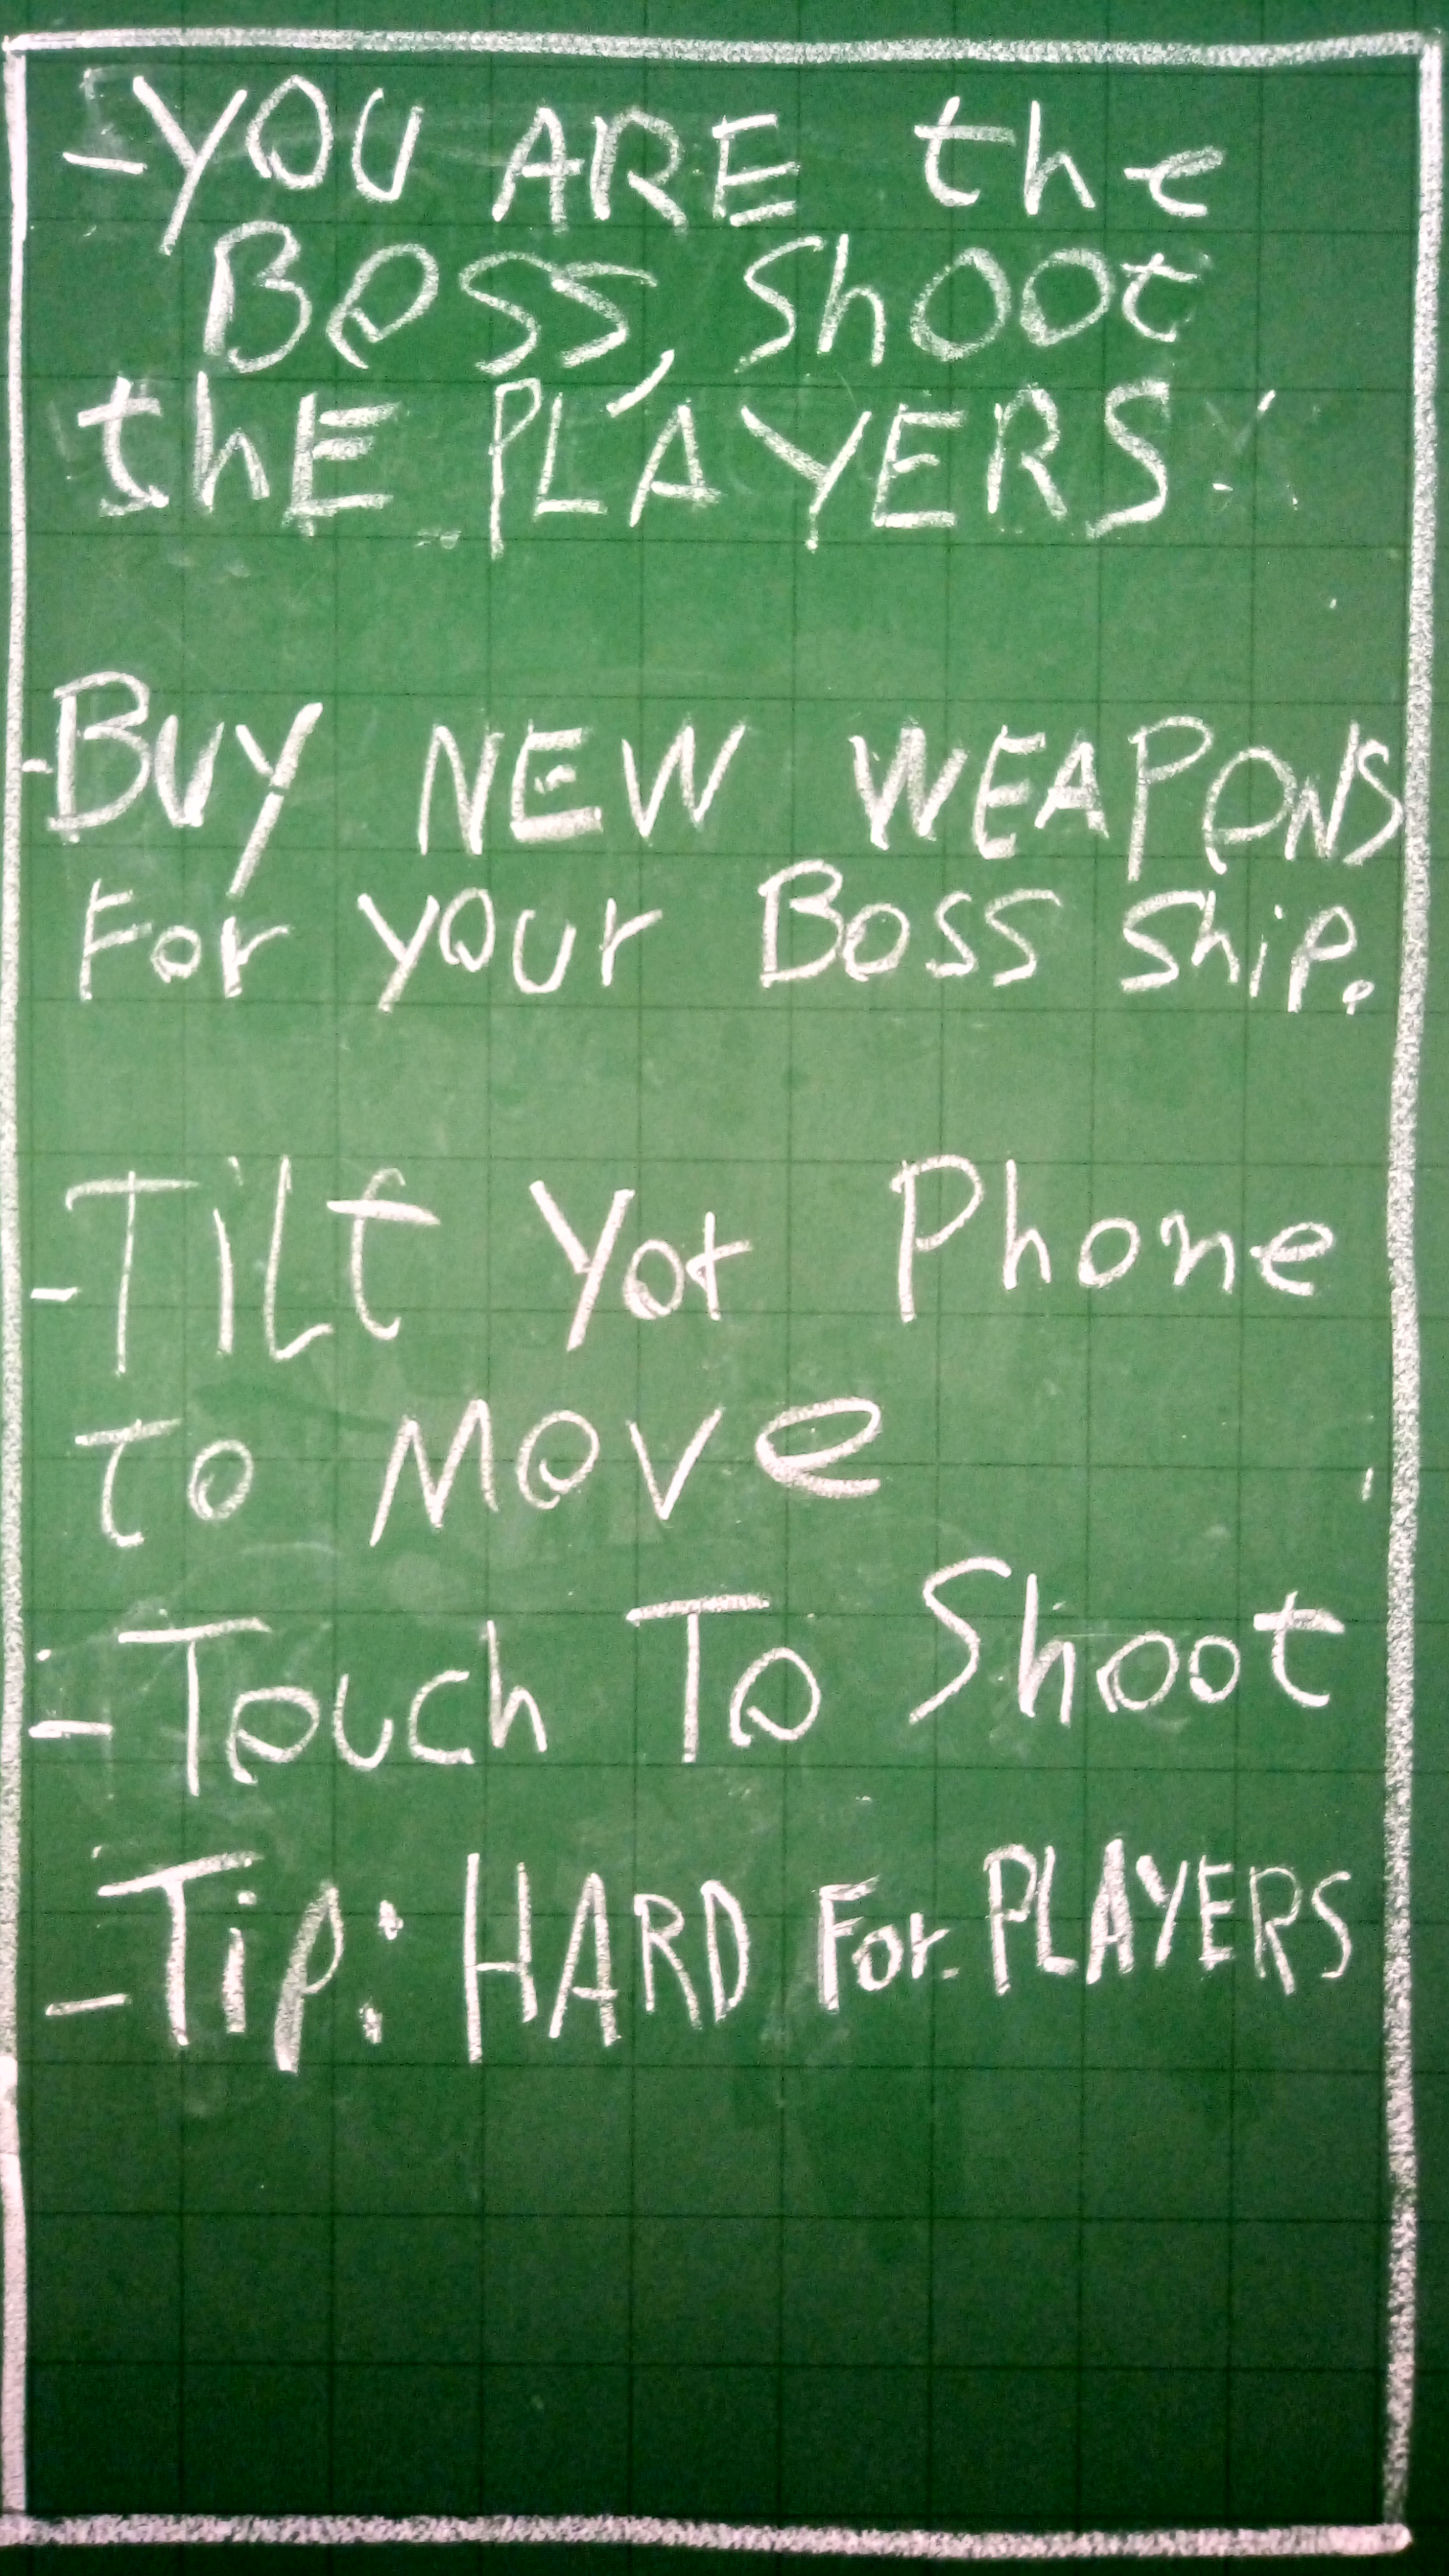 -YOU ARE the
Boss, Shoot
thE PLAYERS.
-BUY NEW WEAPONS
For your Boss Ship.
-TiLt Yor Phone
to Move
-Touch To Shoot
-Tip: HARD For PLAYERS